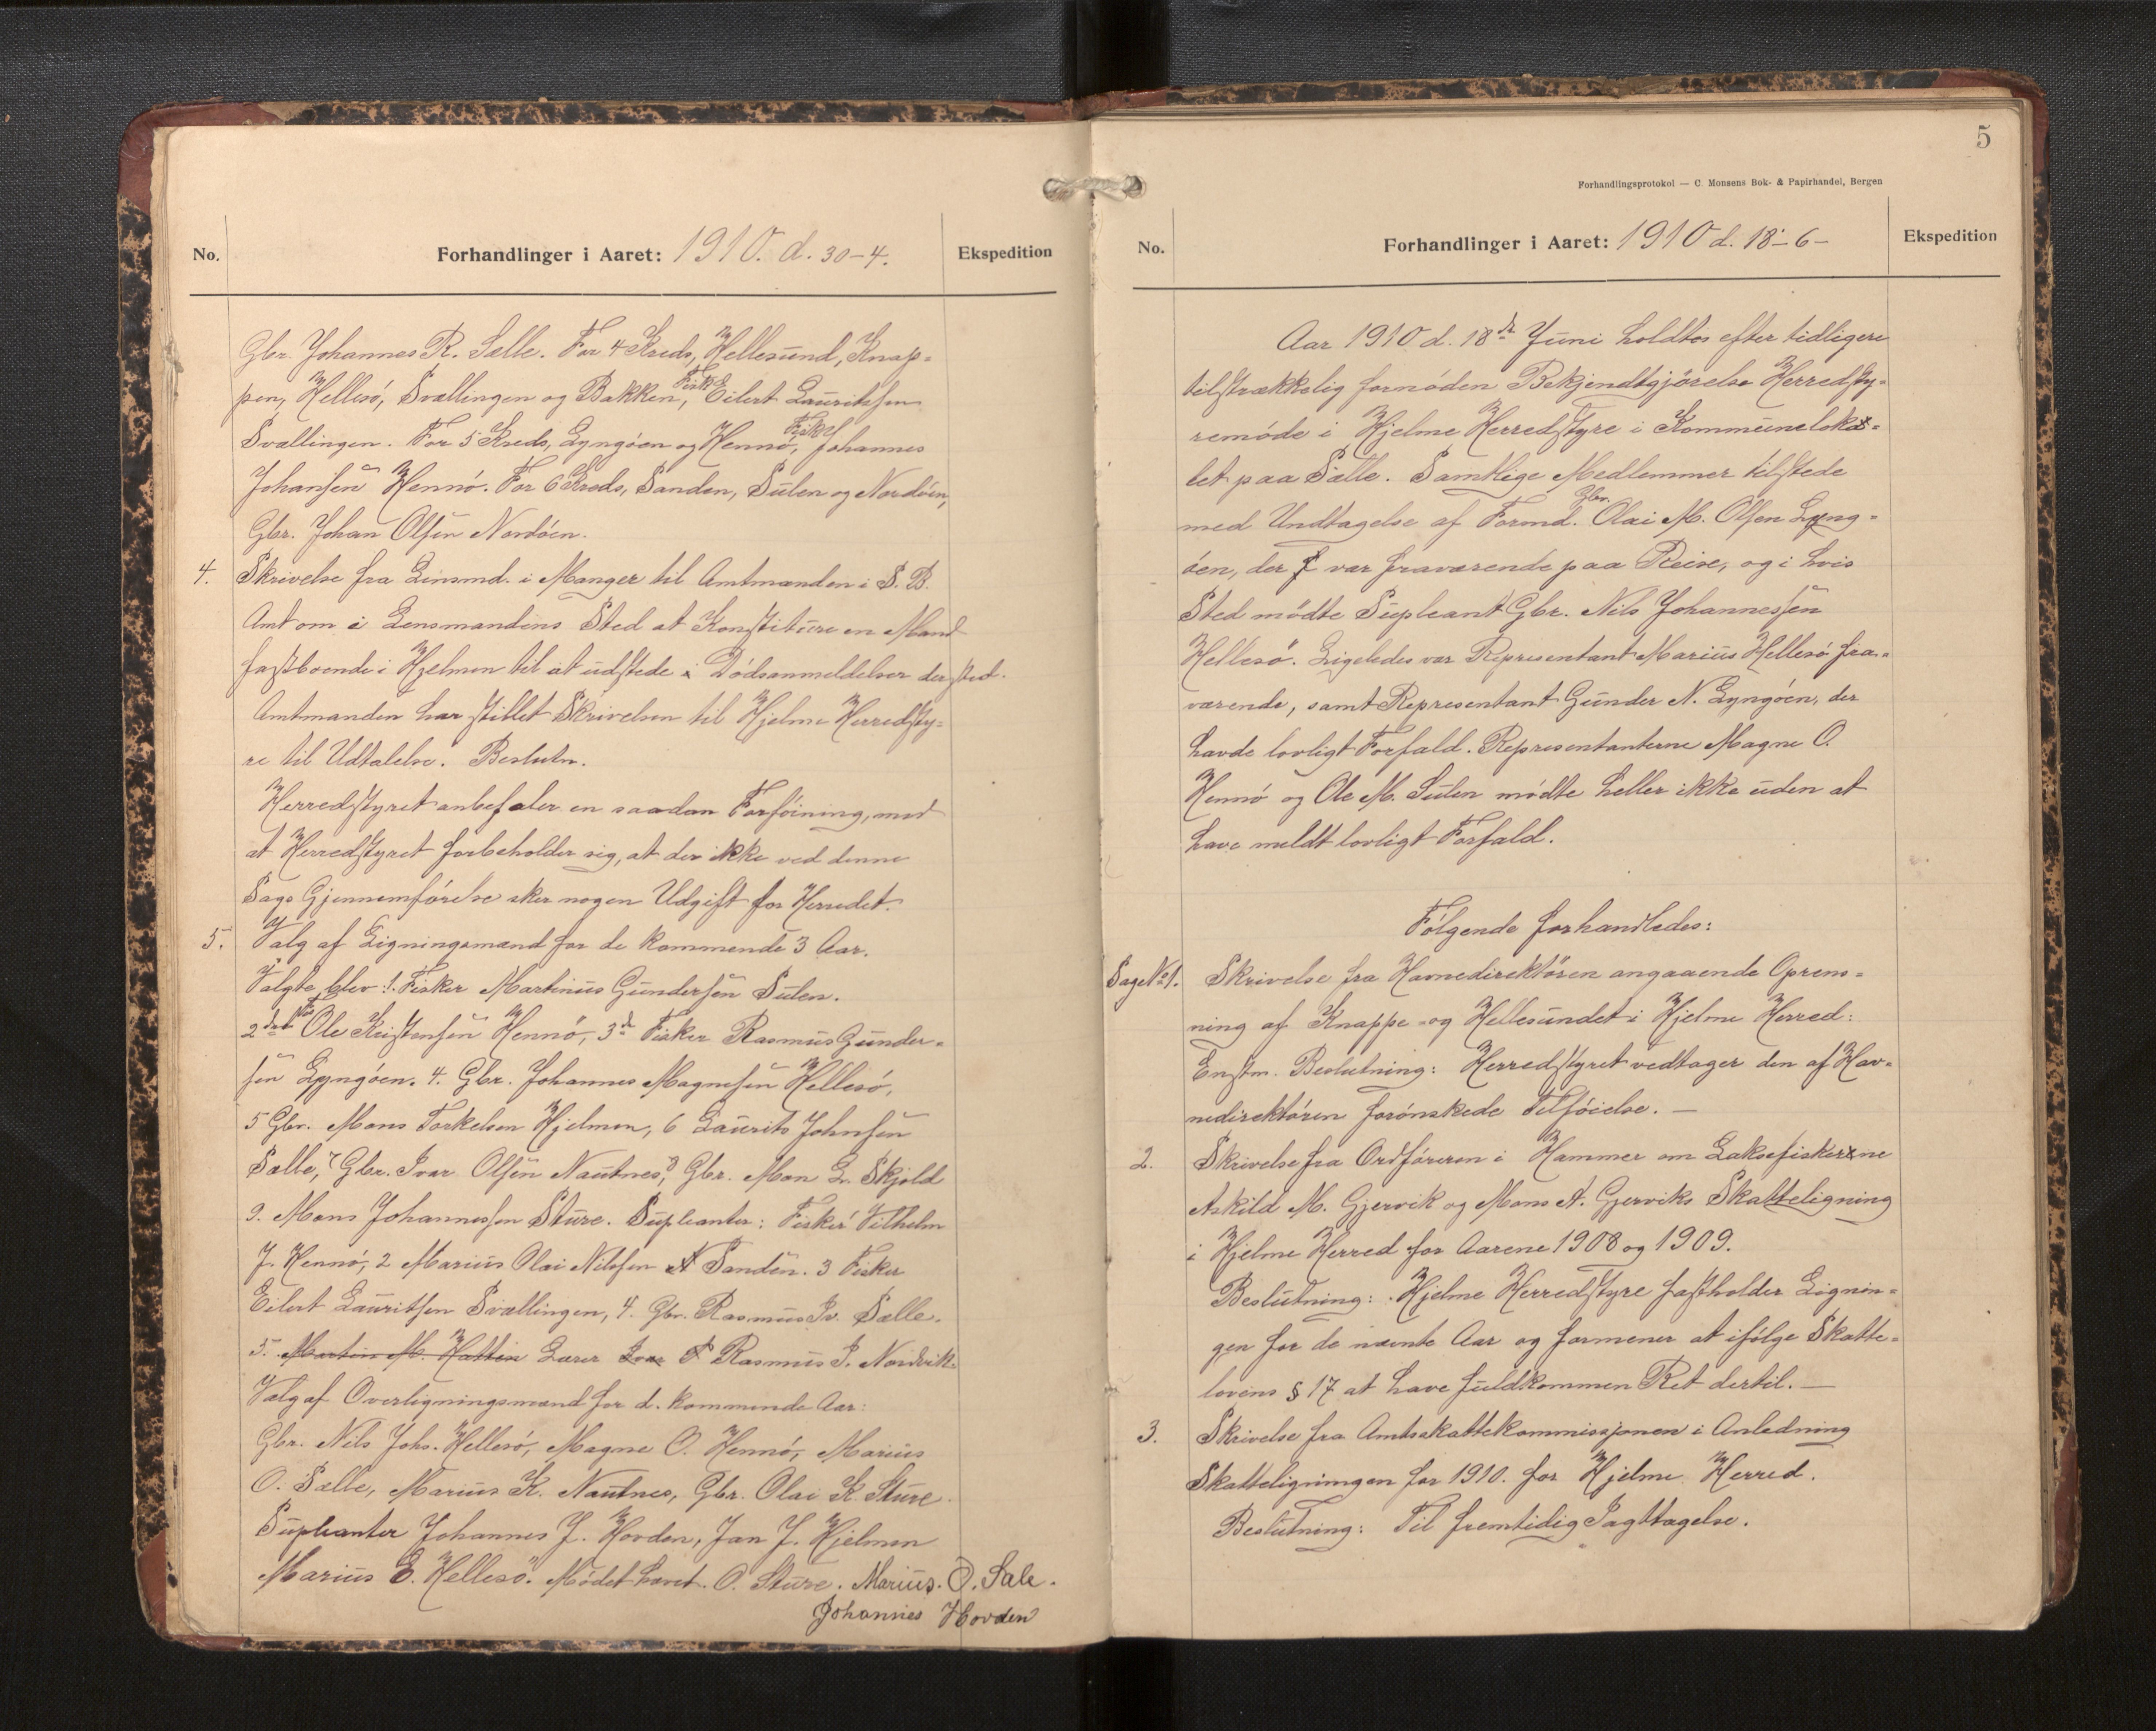 No.
Forhandlinger i Aaret: 1910. d. 30-4.
Ekspedition
Gbr. Johannes R. Sælle. For 4 Kreds, Hellesund, Knap-
pen, Hellesö, Svællingen og Bakken, Fisker Eilert Lauritsen
Svællingen. For 5 Kreds, Lyngöen og Hennö, Fisker Johannes
Johansen Hennö. For 6 Kreds, Sanden, Sulen og Nordöen,
Gbr. Johan Olsen Nordöen.
4. Skrivelse fra Linsmd. i Manger til Amtmanden i S. B.
Amt om i Lensmandens Sted at Konstituere en Mand
fastboende i Hjelmen til at udstede Dödsanmeldelser dersted.
Amtmanden har stillet Skrivelsen til Hjelme Herredsty-
re til Udtalelse. Beslutn.
Herredstyret anbefaler en saadan Forföining, med
at Herredstyret forbeholder sig, at der ikke ved denne
Sags Gjennemförelse sker nogen Udgift for Herredet.
5. Valg af Ligningsmænd for de kommende 3 Aar.
Valgte blev: 1. Fisker Martinius Gundersen Sulen.
2det Ole Kristensen Hennö, 3de Fisker Rasmus Gunder-
sen Lyngöen. 4. Gbr. Johannes Magnesen Hellesö,
5 Gbr. Mons Torkelsen Hjelmen, 6 Laurits Johnsen
Sælle, 7 Gbr. Ivar Olsen Nautnes, 8 Gbr. Mon L. Skjold
9. Mons Johannessen Sture. Supleanter: Fisker 1 Vilhelm
J. Hennö, 2 Marius Olai Nilssen Sanden. 3 Fisker
Eilert Lauritsen Svællingen, 4. Gbr. Rasmus Iv. Sælle.
5. Martin M. Hatten Lærer Ivar Rasmus P. Nordvik.
Valg af Overligningsmænd for d. kommende Aar:
Gbr. Nils Johs. Hellesö, Magne O. Hennö, Marius
O. Sælle, Marius K. Nautnes, Gbr. Olai K. Sture.
Supleanter Johannes J. Hovden, Jan J. Hjelmen
Marius E. Hellesö. Mödet hævet. O. Sture. Marius. O. Sale.
Johannes Hovden
5
Forhandlingsprotokol — C. Monsens Bok- & Papirhandel, Bergen
No.
Forhandlinger i Aaret: 1910 d. 18-6-
Ekspedition
Aar 1910 d. 18de Juni holdtes efter tidligere
tilstrækkelig fornöden Bekjendtgjörelse Herredsty-
remöde i Hjelme Herredstyre i Kommuneloka-
let paa Sælle. Samtlige Medlemmer tilstede
med Undtagelse af Formd. Gbr. Olai M. Olsen Lyng-
öen, der var fraværende paa Reise, og i hvis
Sted mödte Supleant Gbr. Nils Johannessen
Hellesö. Ligeledes var Representant Marius Hellesö fra-
værende, samt Representant Gunder N. Lyngöen, der
havde lovligt Forfald. Representanterne Magne O.
Hennö og Ole M. Sulen mödte heller ikke uden at
have meldt lovligt Forfald.
Fölgende forhandledes:
Sage No 1. Skrivelse fra Havnedirektören angaaende Oprens-
ning af Knappe- og Hellesundet i Hjelme Herred:
Enstm. Beslutning: Herredstyret vedtager den af Hav-
nedirektören forönskede Tilföielse. —
2. Skrivelse fra Ordföreren i Hammer om Laksefiskerne
Askild M. Gjervik og Mons A. Gjerviks Skatteligning
i Hjelme Herred for Aarene 1908 og 1909.
Beslutning: Hjelme Herredstyre fastholder Lignin-
gen for de nævnte Aar og formener at ifölge Skatte-
lovens § 17 at have fuldkommen Ret dertil. —
3. Skrivelse fra Amtsskattekommissjonen i Anledning
Skatteligningen for 1910. for Hjelme Herred.
Beslutning: Til fremtidig Iagttagelse.